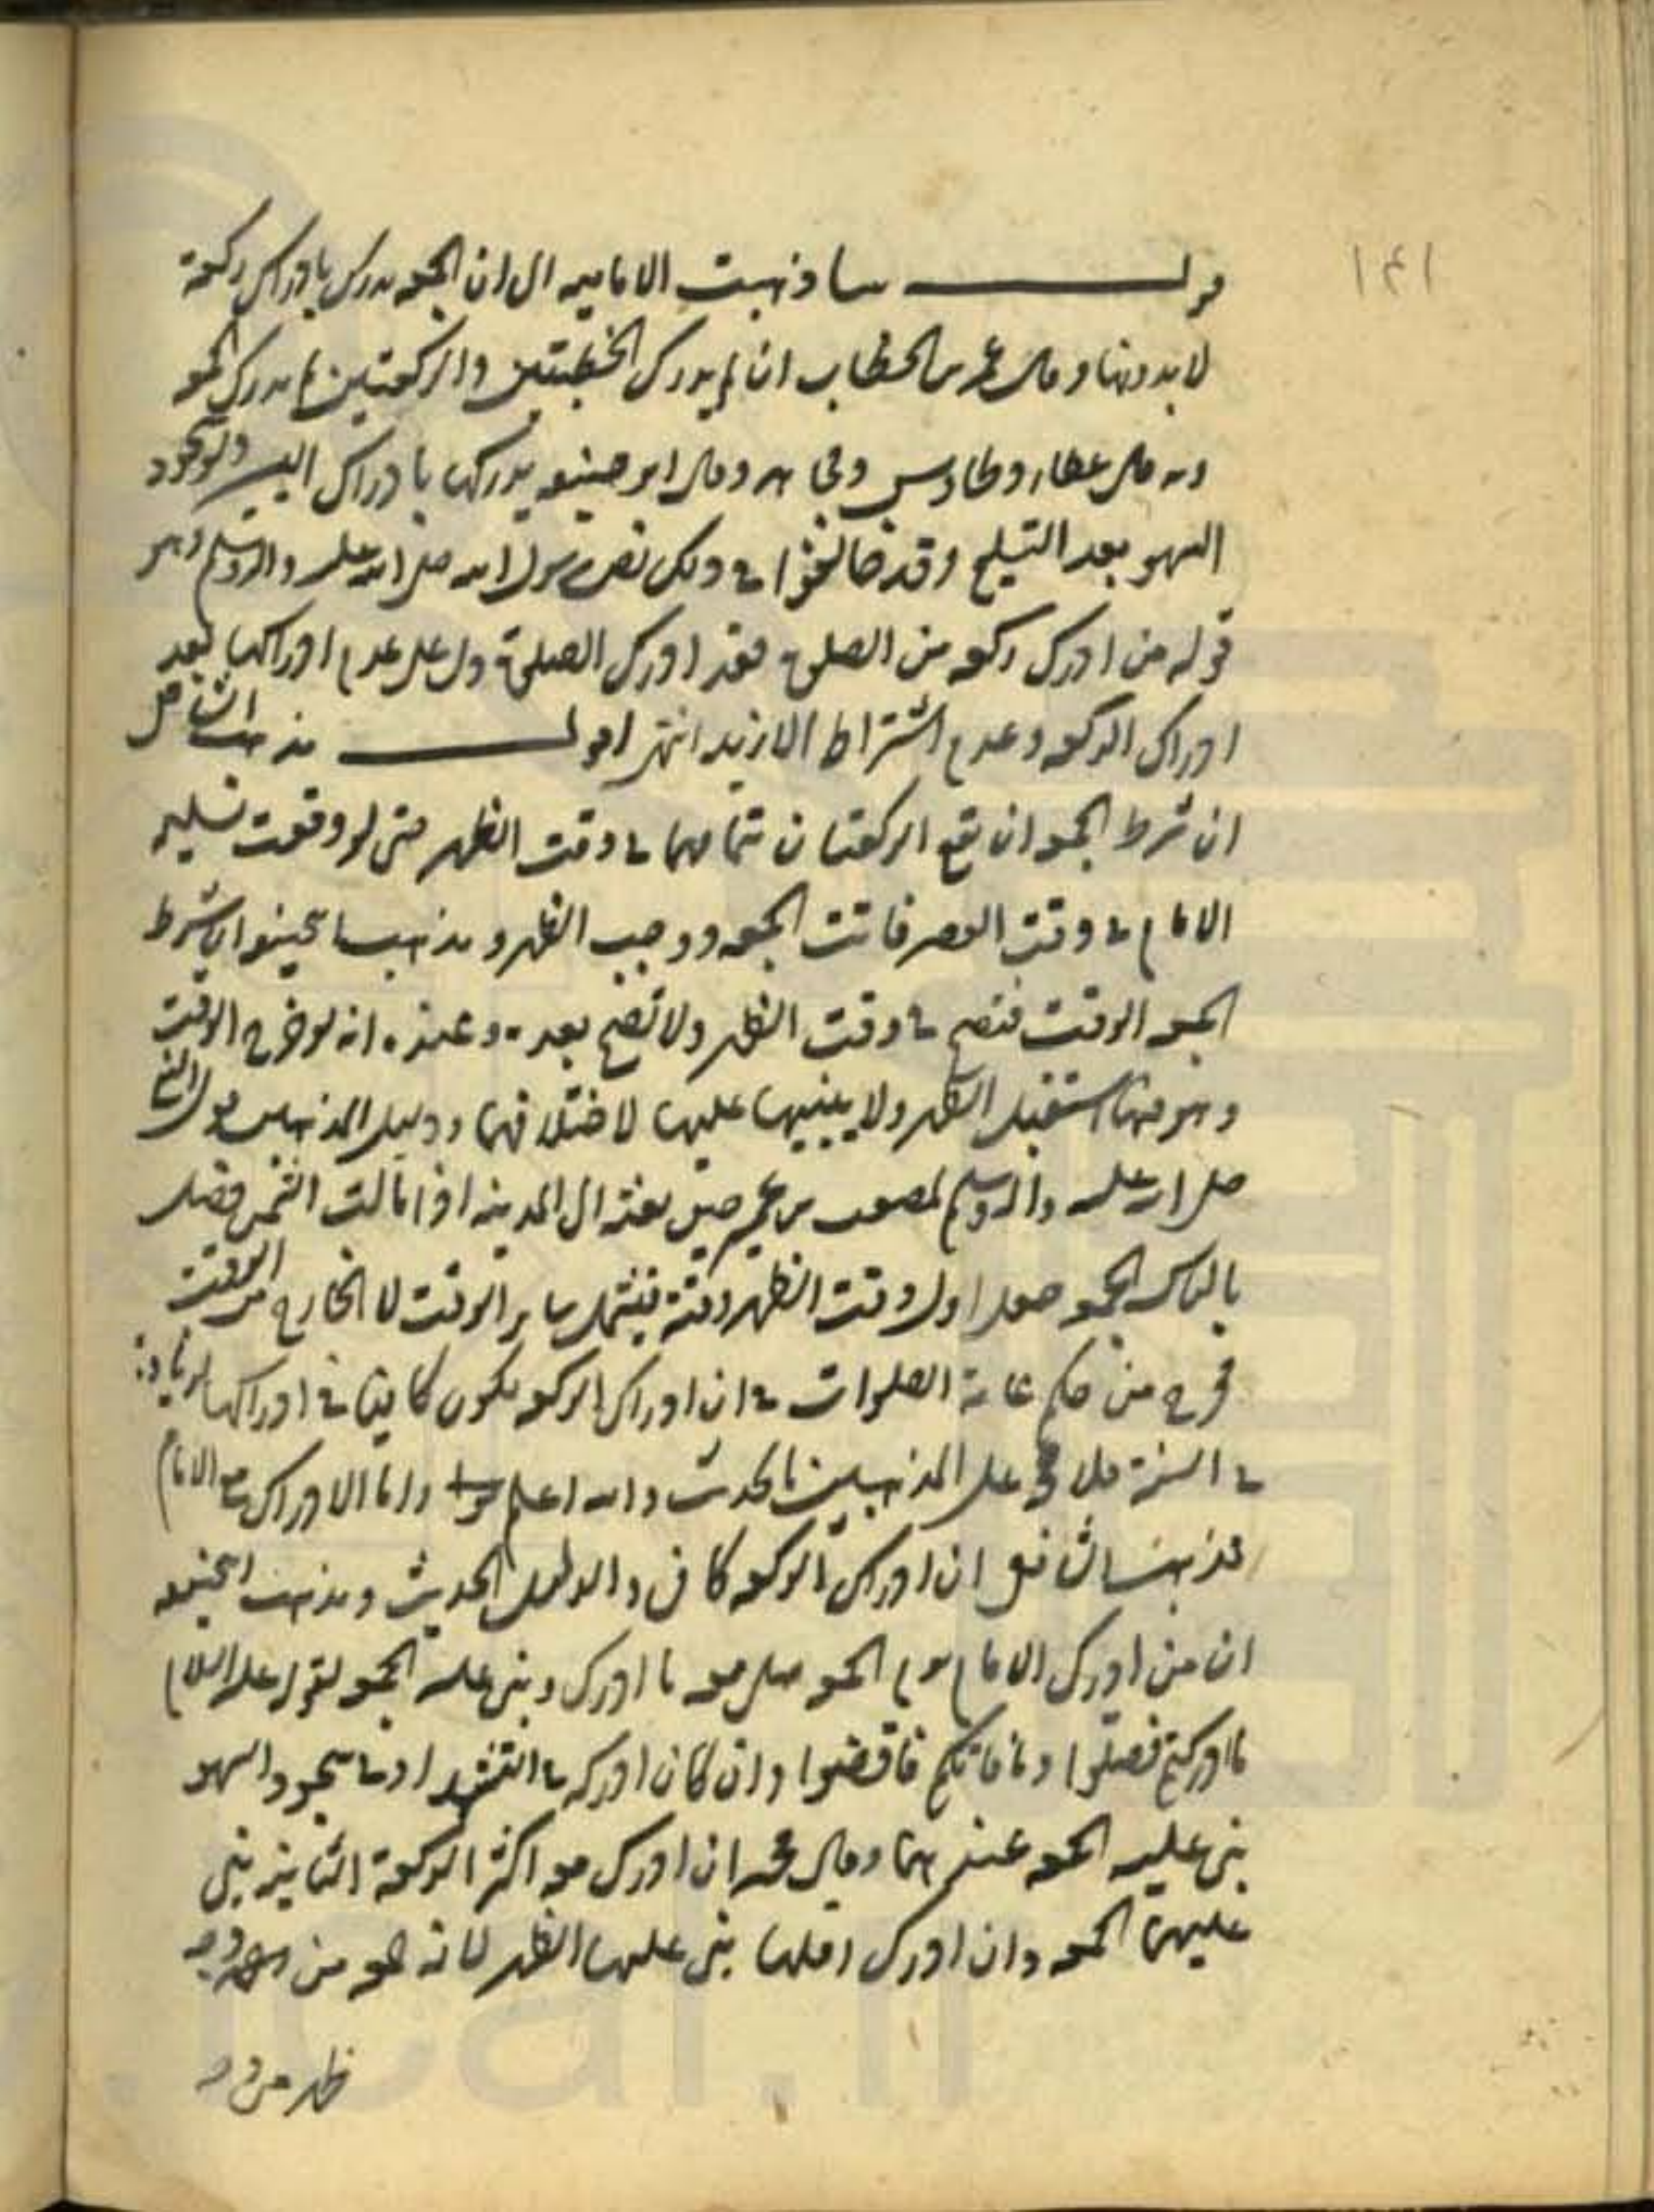 قولـــــــــه سا ذهبت الاماميه الى ان الجمعه تدرك بادراك ركعة
لا بدونها وقال عمر بن الخطاب ان لم يدرك الخطبتين والركعتين لم يدرك الجمعه
وبه قال عطاء وطاوس ومجاهد وقال ابو حنيفه يدركها بادراك اليسير ولو سجود
السهو بعد التسليم وقد خالفوا فى ذلك نص رسول الله صلى الله عليه واله وسلم وهو
قوله من ادرك ركعه من الصلوة فقد ادرك الصلوة دل على عدم ادراكها بعد
ادراك الركعه وعدم اشتراط الازيد انتهى اقولـــــــــ مذهب الشافعى
ان شرط الجمعه ان تقع الركعتان تمامهما فى وقت الظهر حتى لو وقعت تسليمه
الامام فى وقت العصر فاتت الجمعه ووجب الظهر ومذهب ابى حنيفه ان شرط
الجمعه الوقت فتصح فى وقت الظهر ولا تصح بعده وعنده انه لو خرج الوقت
وهو فيها استقبل الظهر ولا يبنيها عليها لاختلافهما ودليل المذهبين قول النبى
صلى الله عليه واله وسلم لمصعب بن عمير حين بعثه الى المدينه اذا مالت الشمس فصل
بالناس الجمعه جعل اول وقت الظهر وقته فيشمل ساير الوقت لا الخارج من الوقت
فخرج من حكم عامة الصلوات فى ان ادراك الركعه يكون كافيا فى ادراكها
فى السنة فلا على المذهبين بالحديث والله اعلم واما الادراك مع الامام
فمذهب الشافعى ان ادراك الركعه كاف والدليل الحديث ومذهب ابى حنيفه
ان من ادرك الامام يوم الجمعه صلى معه ما ادرك وبنى عليه الجمعه لقوله عليه السلام
ما ادركتم فصلوا وما فاتكم فاقضوا وان كان ادركه فى التشهد او فى سجود السهو
بنى عليه الجمعه عندهما وقال محمد ان ادرك معه اكثر الركعة الثانية بنى
عليها الجمعه وان ادرك اقلها بنى عليها الظهر لانه جمعه من وجه
ظهر من وجه